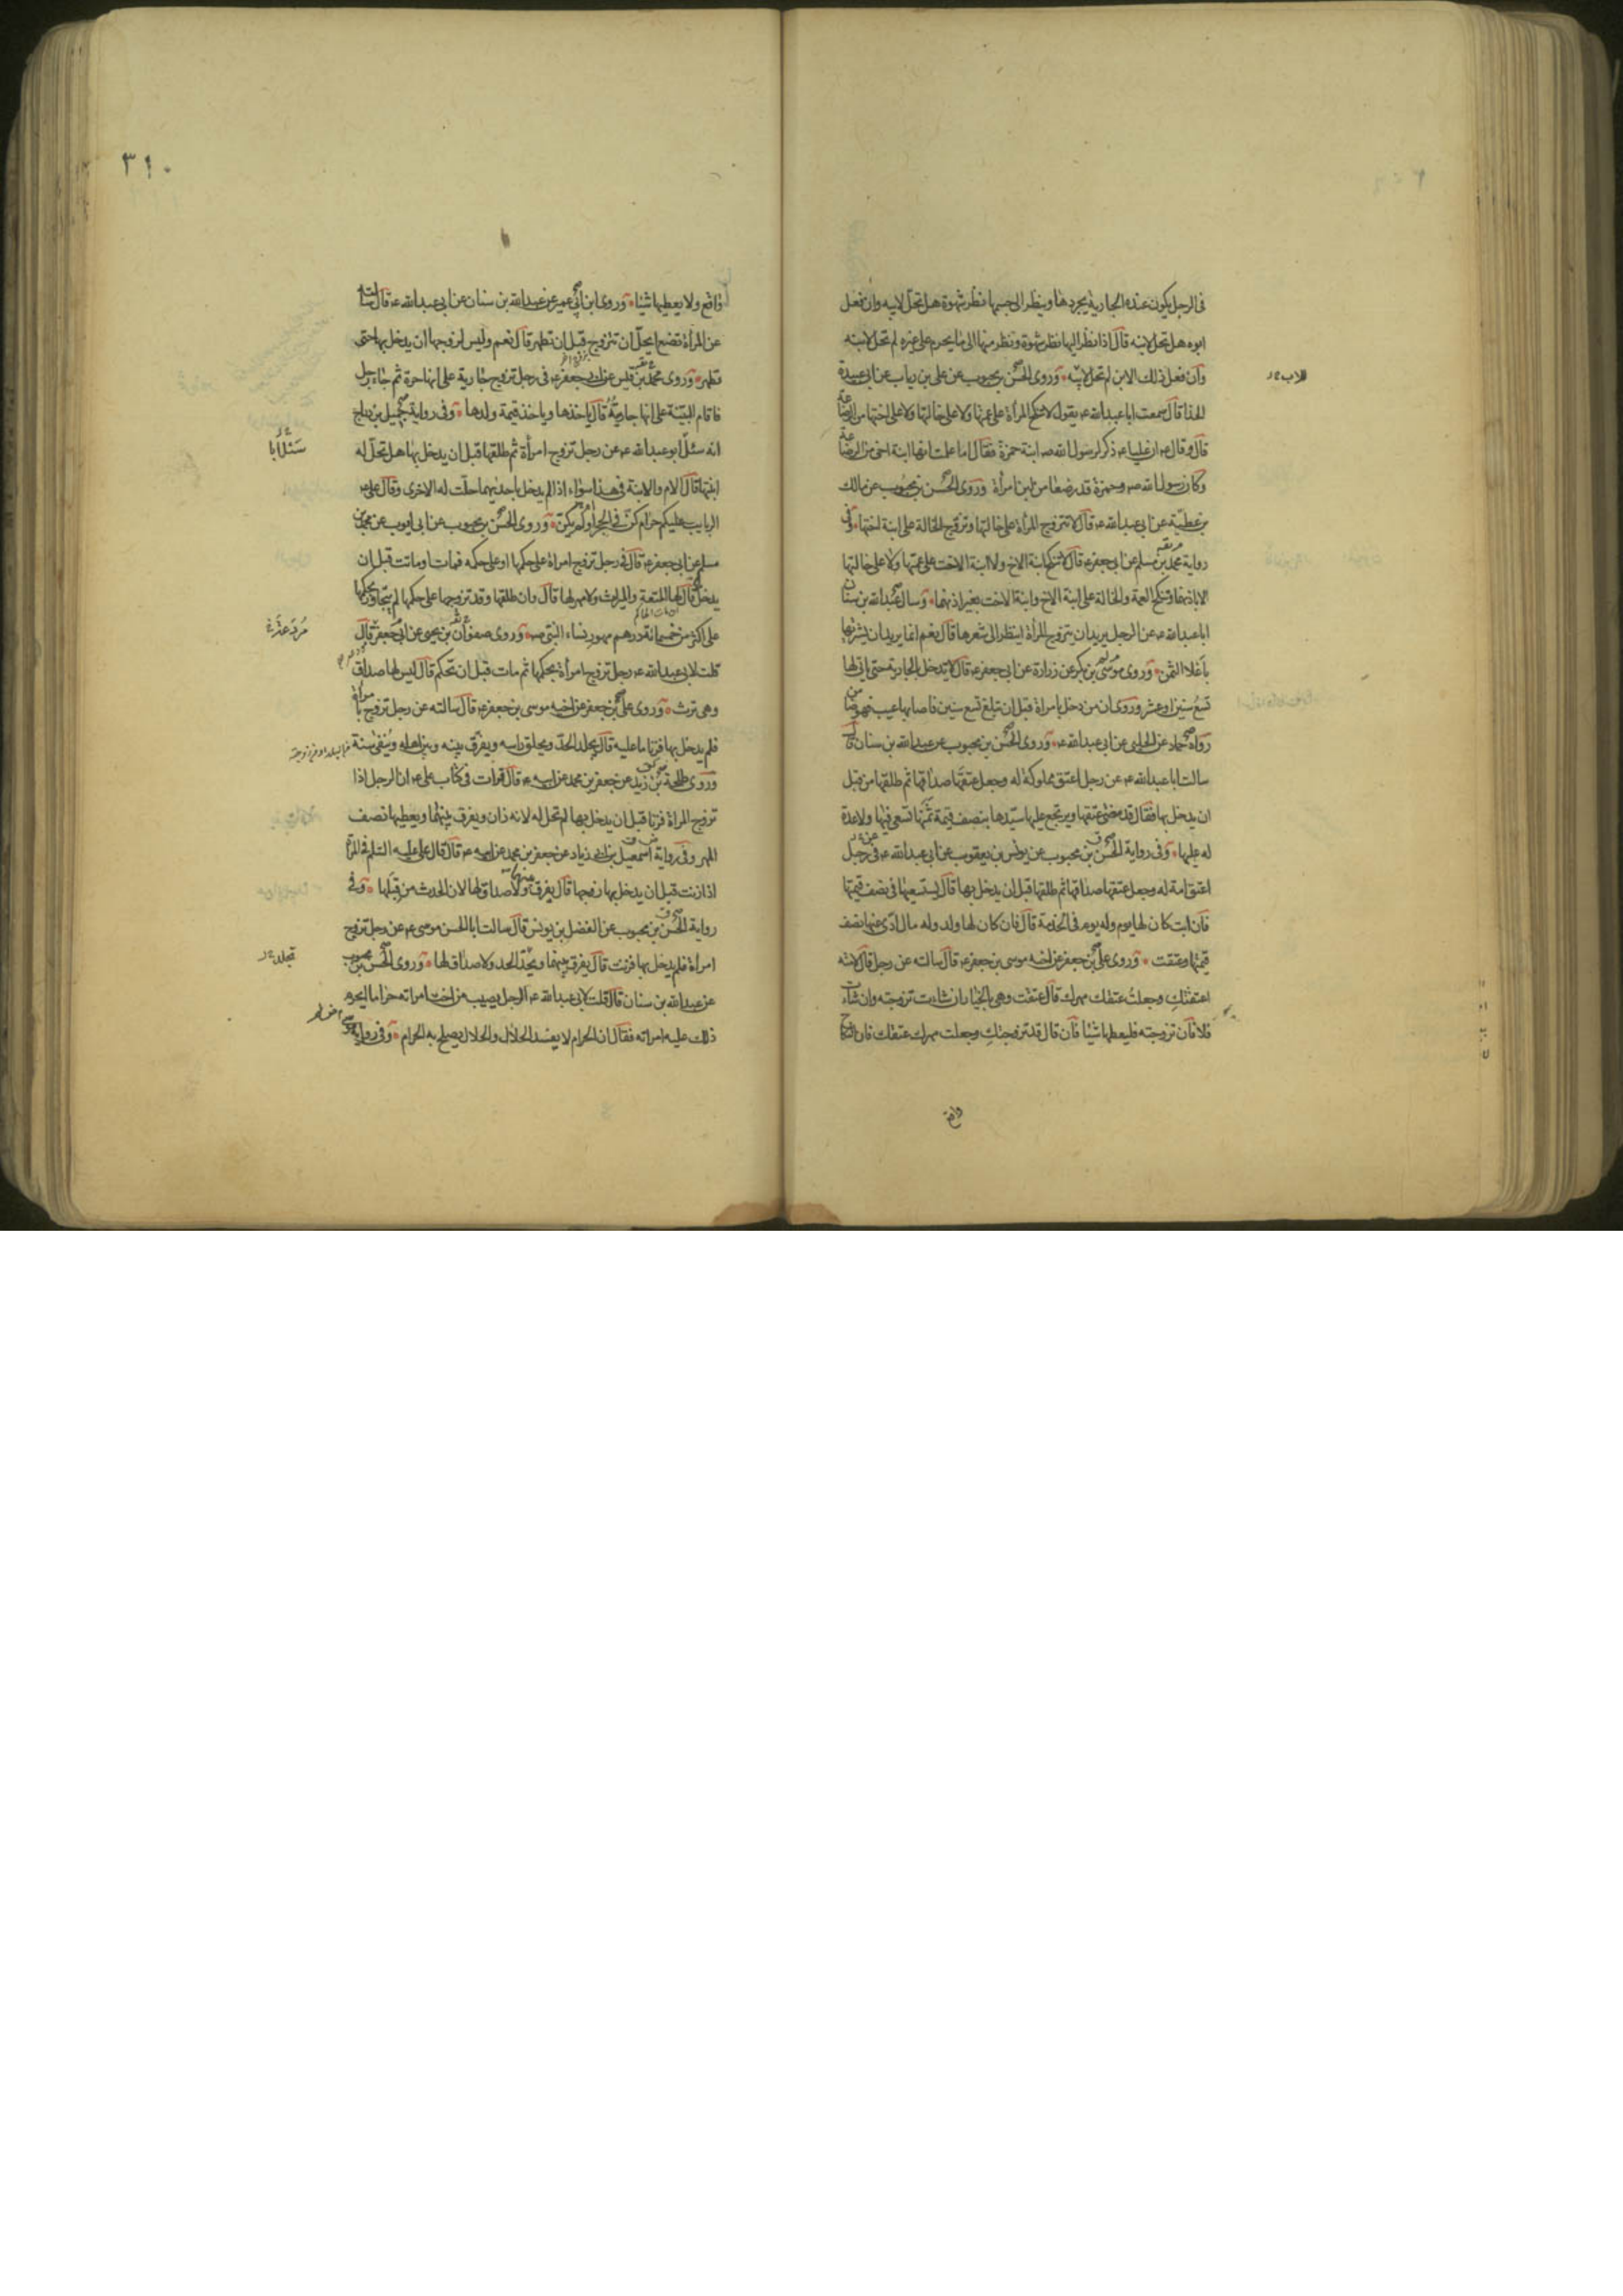 فى الرجل يكون عنده الجارية يجردها وينظر الى جسمها نظر شهوة هل تحل لابيه وان فعل
ابوه هل تحل لابنه قال اذا نظر اليها نظر شهوة ونظر منها الى ما يحرم على غيره لم تحل لابنه
وان فعل ذلك الابن لم تحل لابيه وروى الحسن بن محبوب عن على بن رياب عن ابى عبيدة
للاب
الحذا قال سمعت ابا عبدالله ع يقول لا تنكح المراة على عمتها ولا على خالتها ولا على اختها من الرضاعة
قال وقال ع ان عليا ع ذكر لرسول الله ص ابنة حمزة فقال اما علمت انها ابنة اخى من الرضاعة
وكان رسول الله ص وحمزة قد رضعا من لبن امرأة وروى الحسن بن محبوب عن مالك
بن عطية عن ابى عبدالله ع قال لا تتزوج المرأة على خالتها وتزوج الخالة على ابنة اختها وفى
رواية محمد بن مسلم عن ابى جعفر ع قال لا تنكح ابنة الاخ ولا ابنة الاخت على عمتها ولا على خالتها
الا باذنهما وتنكح العمة والخالة على ابنة الاخ وابنة الاخت بغير اذنهما وسال عبدالله بن سنان
ابا عبدالله ع عن الرجل يريد ان يتزوج المرأة اينظر الى شعرها قال نعم انما يريد ان يشتريها
باغلا الثمن وروى موسى بن بكر عن زرارة عن ابى جعفر ع قال لا يدخل بالجارية حتى ياتى لها
تسع سنين او عشر وروى ان من دخل بامراة قبل ان تبلغ تسع سنين فاصابها عيب فهو ضامن
رواه حماد عن الحلبى عن ابى عبدالله ع وروى الحسن بن محبوب عن عبدالله بن سنان قال
سالت ابا عبدالله ع عن رجل اعتق مملوكة له وجعل عتقها صداقها ثم طلقها من قبل
ان يدخل بها فقال قد مضى عتقها ويرتجع عليها سيدها بنصف قيمة ثمنها تسعى فيها ولا عدة
له عليها وفى رواية الحسن بن محبوب عن يونس بن يعقوب عن ابى عبدالله ع فى رجل
اعتق امة له وجعل عتقها صداقها ثم طلقها قبل ان يدخل بها قال يستسعيها فى نصف قيمتها
فان ابت كان لها يوم وله يوم فى الخدمة قال فان كان لها ولد وله مال ادى عنها نصف
قيمتها وعتقت وروى على بن جعفر عن اخيه موسى بن جعفر ع قال سالته عن رجل قال لامته
اعتقتك وجعلت عتقك مهرك قال عتقت وهى بالخيار ان شاءت تزوجته وان شاءت
فلا فان تزوجته فليعطها شيئا فان قال قد تزوجتك وجعلت مهرك عتقك فان النكاح
واقع
٣١٠
واقع ولا يعطيها شيئا وروى ابن ابى عمير عن عبدالله بن سنان عن ابى عبدالله ع قال سالته
عن المراة تضع ايحل ان تتزوج قبل ان تطهر قال نعم وليس لزوجها ان يدخل بها حتى
تطهر وروى محمد بن قيس عن ابى جعفر ع فى رجل تزوج جارية على انها حرة ثم جاء رجل
فاقام البينة على انها جاريته قال ياخذها وياخذ قيمة ولدها وفى رواية جميل بن دراج
انه سئل ابو عبدالله ع عن رجل تزوج امرأة ثم طلقها قبل ان يدخل بها هل تحل له
سئل ابا
ابنتها قال الام والابنة فى هذا سواء اذا لم يدخل باحديهما حلت له الاخرى وقال على ع
الربايب عليكم حرام كن فى الحجر او لم يكن وروى الحسن بن محبوب عن ابى ايوب عن محمد بن
مسلم عن ابى جعفر ع قال فى رجل تزوج امراة على حكمها او على حكمه فمات او ماتت قبل ان
يدخل قال لها المتعة والميراث ولا مهر لها قال وان طلقها وقد تزوجها على حكمها لم يتجاوز بحكمها
على اكثر من خمسمائة درهم مهور نساء النبى ص وروى صفوان بن يحيى عن ابى جعفر قال
قلت لابى عبدالله ع رجل تزوج امرأة بحكمها ثم مات قبل ان تحكم قال ليس لها صداق
وهى ترث وروى على بن جعفر عن اخيه موسى بن جعفر ع قال سالته عن رجل تزوج بامراة
فلم يدخل بها فزنا ما عليه قال يجلد الحد ويحلق راسه ويفرق بينه وبين اهله وينفى سنة
وروى طلحة بن زيد عن جعفر بن محمد عن ابيه ع قال قرات فى كتاب على ع ان الرجل اذا
تزوج المراة فزنا قبل ان يدخل بها لم تحل له لانه زان ويفرق بينهما ويعطيها نصف
المهر وفى رواية اسمعيل بن ابى زياد عن جعفر بن محمد عن ابيه ع قال قال على عليه السلم فى المراة
اذا زنت قبل ان يدخل بها زوجها قال يفرق بينهما ولا صداق لها لان الحدث من قبلها وفى
رواية الحسن بن محبوب عن الفضل بن يونس قال سالت ابا الحسن موسى ع عن رجل تزوج
امراة فلم يدخل بها فزنت قال يفرق بينهما وتحد الحد ولا صداق لها وروى الحسن بن محبوب
تجلد
عن عبدالله بن سنان قال قلت لابى عبدالله ع الرجل يصيب من اخت امراته حراما ايحرم
ذلك عليه امراته فقال ان الحرام لا يفسد الحلال والحلال يصلح به الحرام وفى رواية